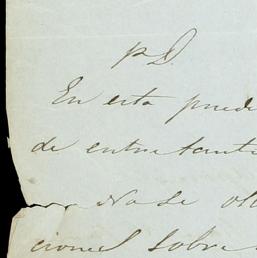 P.D.
En esta puede
de entre tanto
No se ol
ciones sobre